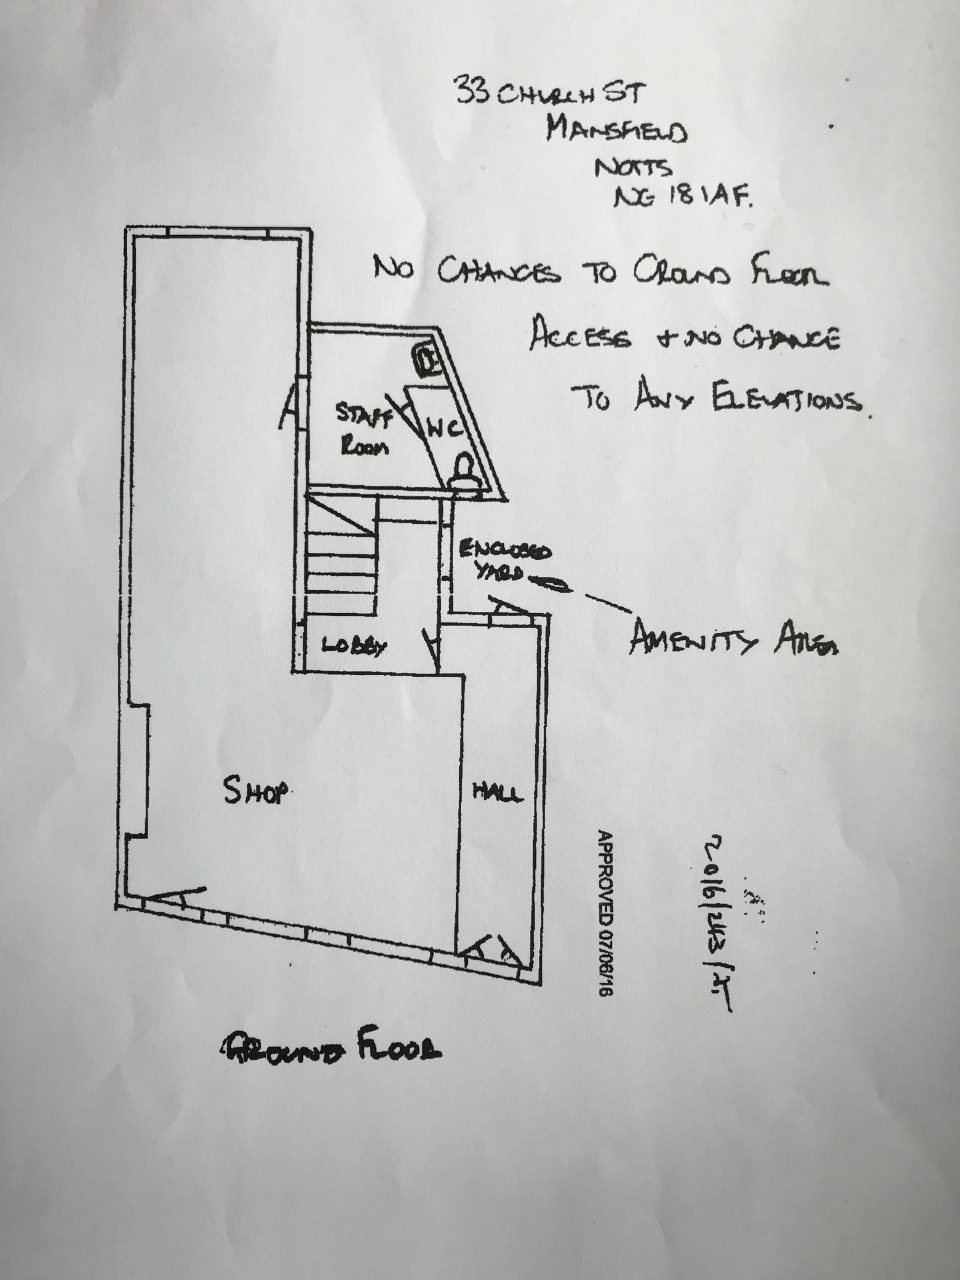 33 CHURCH ST
MANSFIELD
NOTTS
NG 18 1AF.
NO CHANGES TO GROUND FLOOR
ACCESS + NO CHANGE
TO ANY ELEVATIONS.
STAFF
ROOM
WC
ENCLOSED
YARD
AMENITY AREA
LOBBY
SHOP
HALL
APPROVED 07/06/16
GROUND FLOOR